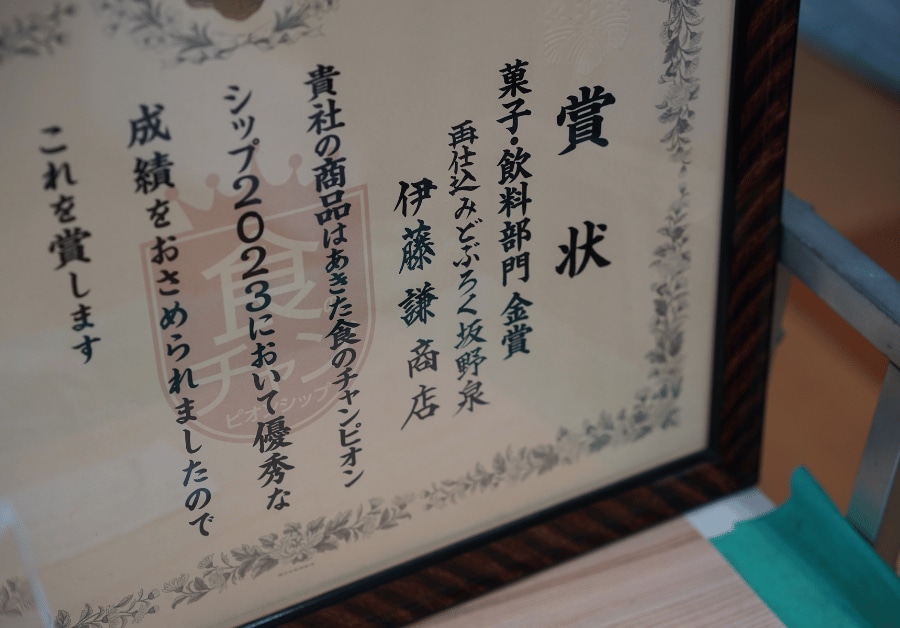 賞状
菓子・飲料部門 金賞
再仕込みどぶろく坂野泉
伊藤謙商店
貴社の商品はあきた食のチャンピオン
シップ2023において優秀な
成績をおさめられましたので
これを賞します
食
チャン
ピオンシップ